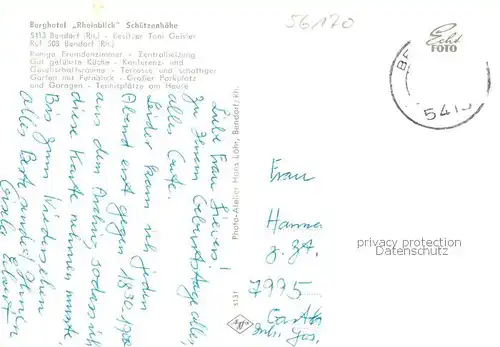 56170
Berghotel „Rheinblick" Schützenhöhe
5413 Bendorf (Rh.) - Besitzer Toni Geisler
Ruf 508 Bendorf (Rh.)
Ruhige Fremdenzimmer - Zentralheizung
Gut geführte Küche - Konferenz- und
Gesellschaftsräume - Terrasse und schattiger
Garten mit Fernblick - Großer Parkplatz
und Garagen - Tennisplätze am Hause
Echt
FOTO
5413
Liebe Frau
zu Ihrem Geburtstag alles,
alles Gute.
Leider kam ich jeden
Abend erst gegen
aus dem Archiv, sodass ich
diese Karte nehmen musste.
Bis zum Wiedersehen
alles Beste sendet Ihnen
Gisela
Photo-Atelier Hans Löhr, Bendorf/Rh.
5131
Frau
Hanna
z. Zt.
7995
privacy protection
Datenschutz